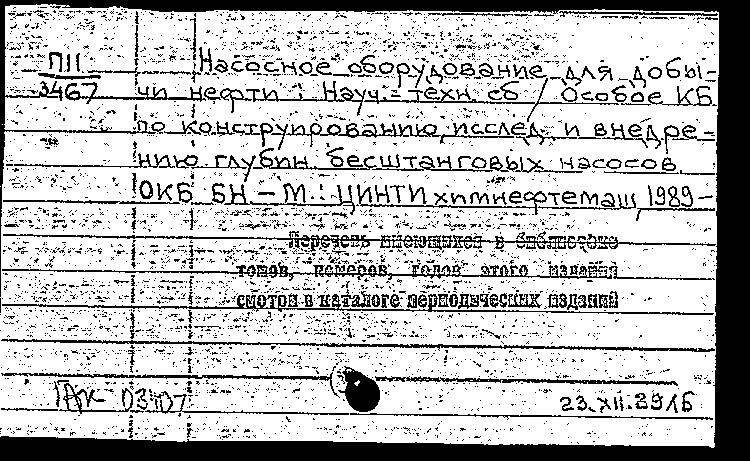 П11
3467
Насосное оборудование для добы-
чи нефти : Науч.-техн. сб / Особое КБ
по конструированию, исслед. и внедре-
нию глубин. бесштанговых насосов.
ОКБ БН – М. : ЦИНТИхимнефтемаш, 1989–
Перечень имеющихся в библиотеке
томов, номеров, годов этого издания
смотри в каталоге периодических изданий
23.XII.89